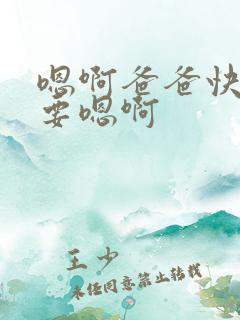 嗯啊爸爸快
要嗯啊
王少
未经同意禁止转载